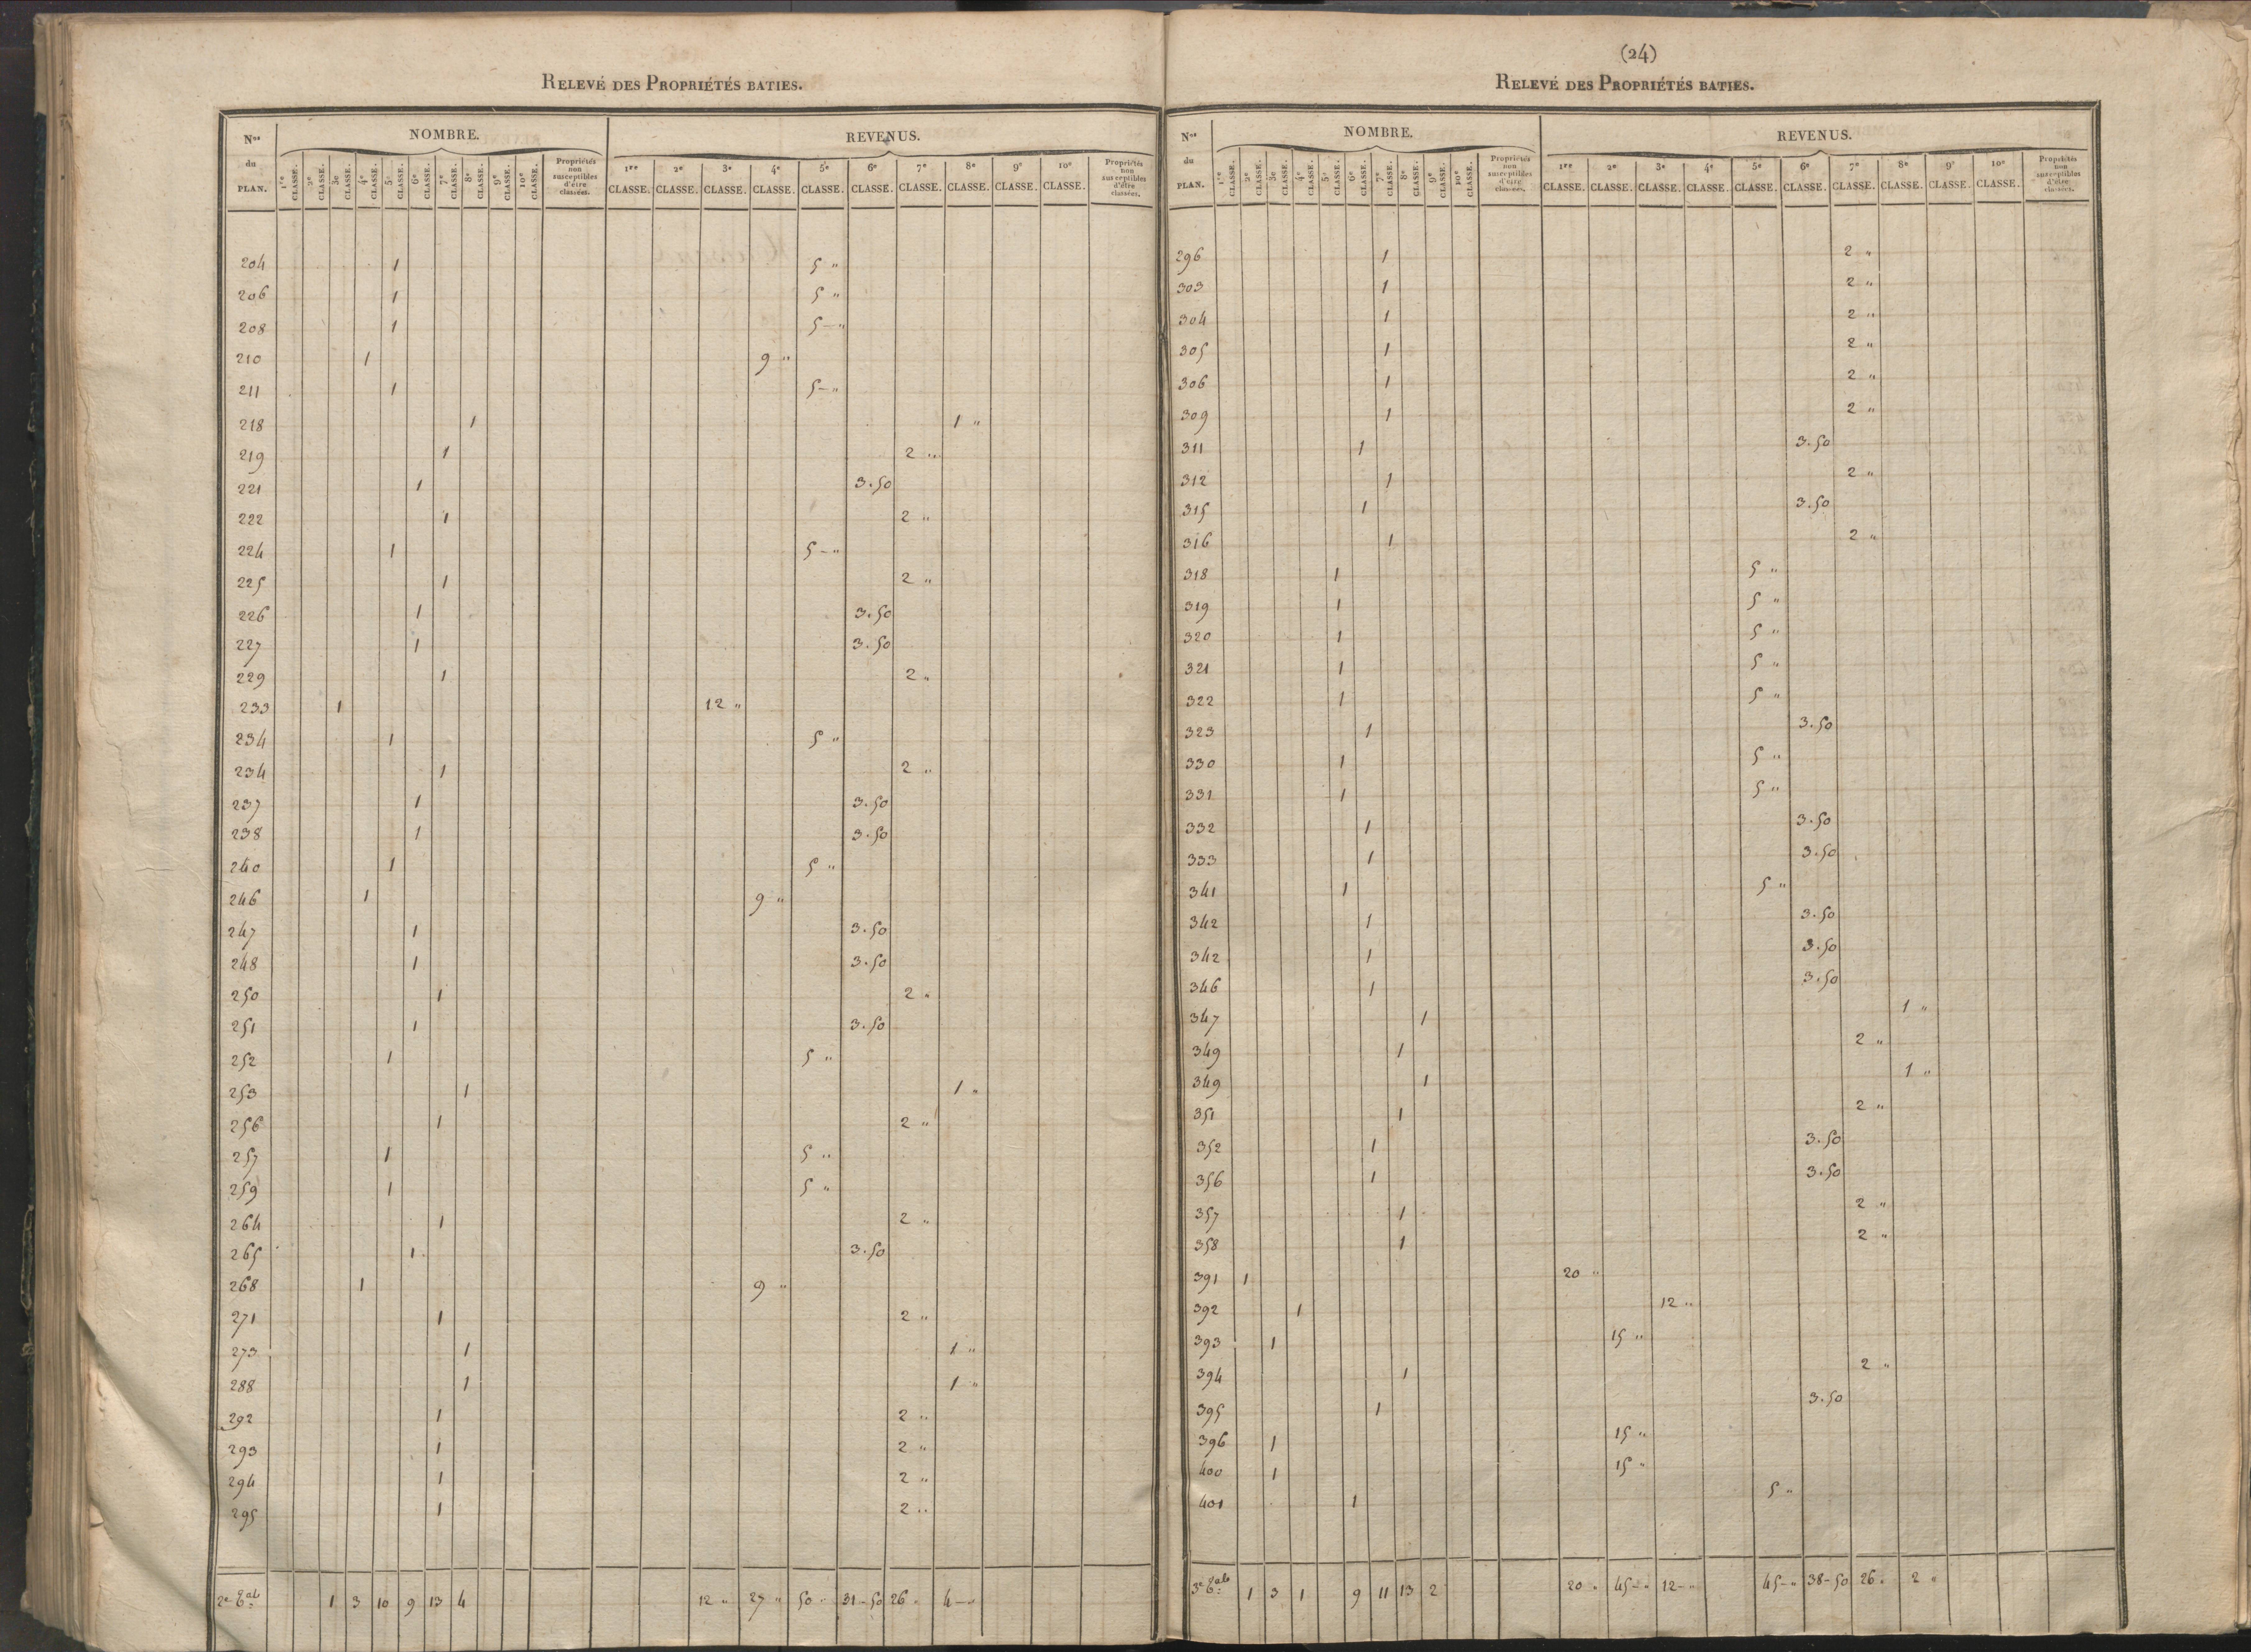 RELEVÉ DES PROPRIÉTÉS BATIES.
Nos du PLAN. NOMBRE. REVENUS.
1re CLASSE. 2e CLASSE. 3e CLASSE. 4e CLASSE. 5e CLASSE. 6e CLASSE. 7e CLASSE. 8e CLASSE. 9e CLASSE. 10e CLASSE. Propriétés non susceptibles d'être classées. 1re CLASSE. 2e CLASSE. 3e CLASSE. 4e CLASSE. 5e CLASSE. 6e CLASSE. 7e CLASSE. 8e CLASSE. 9e CLASSE. 10e CLASSE. Propriétés non susceptibles d'être classées.
204 1 5 "
206 1 5 "
208 1 5 – "
210 1 9 "
211 1 5 – "
218 1 1 "
219 1 2 "
221 1 3.50
222 1 2 "
224 1 5 – "
225 1 2 "
226 1 3.50
227 1 3.50
229 1 2 "
233 1 12 "
234 1 5 "
234 1 2 "
237 1 3.50
238 1 3.50
240 1 5 "
246 1 9 "
247 1 3.50
248 1 3.50
250 1 2 "
251 1 3.50
252 1 5 "
253 1 1 "
256 1 2 "
257 1 5 "
259 1 5 "
264 1 2 "
265 1 3.50
268 1 9 "
271 1 2 "
273 1 1 "
288 1 1 "
292 1 2 "
293 1 2 "
294 1 2 "
295 1 2 "
1 3 10 9 13 4 12 " 27 " 50 " 31–50 26 " 4 – "
(24)
RELEVÉ DES PROPRIÉTÉS BATIES.
Nos du PLAN. NOMBRE. REVENUS.
1re CLASSE. 2e CLASSE. 3e CLASSE. 4e CLASSE. 5e CLASSE. 6e CLASSE. 7e CLASSE. 8e CLASSE. 9e CLASSE. 10e CLASSE. Propriétés non susceptibles d'être classées. 1re CLASSE. 2e CLASSE. 3e CLASSE. 4e CLASSE. 5e CLASSE. 6e CLASSE. 7e CLASSE. 8e CLASSE. 9e CLASSE. 10e CLASSE. Propriétés non susceptibles d'être classées.
296 1 2 "
303 1 2 "
304 1 2 "
305 1 2 "
306 1 2 "
309 1 2 "
311 1 3.50
312 1 2 "
315 1 3.50
316 1 2 "
318 1 5 "
319 1 5 "
320 1 5 "
321 1 5 "
322 1 5 "
323 1 3.50
330 1 5 "
331 1 5 "
332 1 3.50
333 1 3.50
341 1 5 "
342 1 3.50
342 1 3.50
346 1 3.50
347 1 1 "
349 1 2 "
349 1 1 "
351 1 2 "
352 1 3.50
356 1 3.50
357 1 2 "
358 1 2 "
391 1 20 "
392 1 12 "
393 1 15 "
394 1 2 "
395 1 3.50
396 1 15 "
400 1 15 "
401 1 5 "
1 3 1 9 11 13 2 20 " 45 – " 12 – " 45 – " 38–50 26 " 2 "